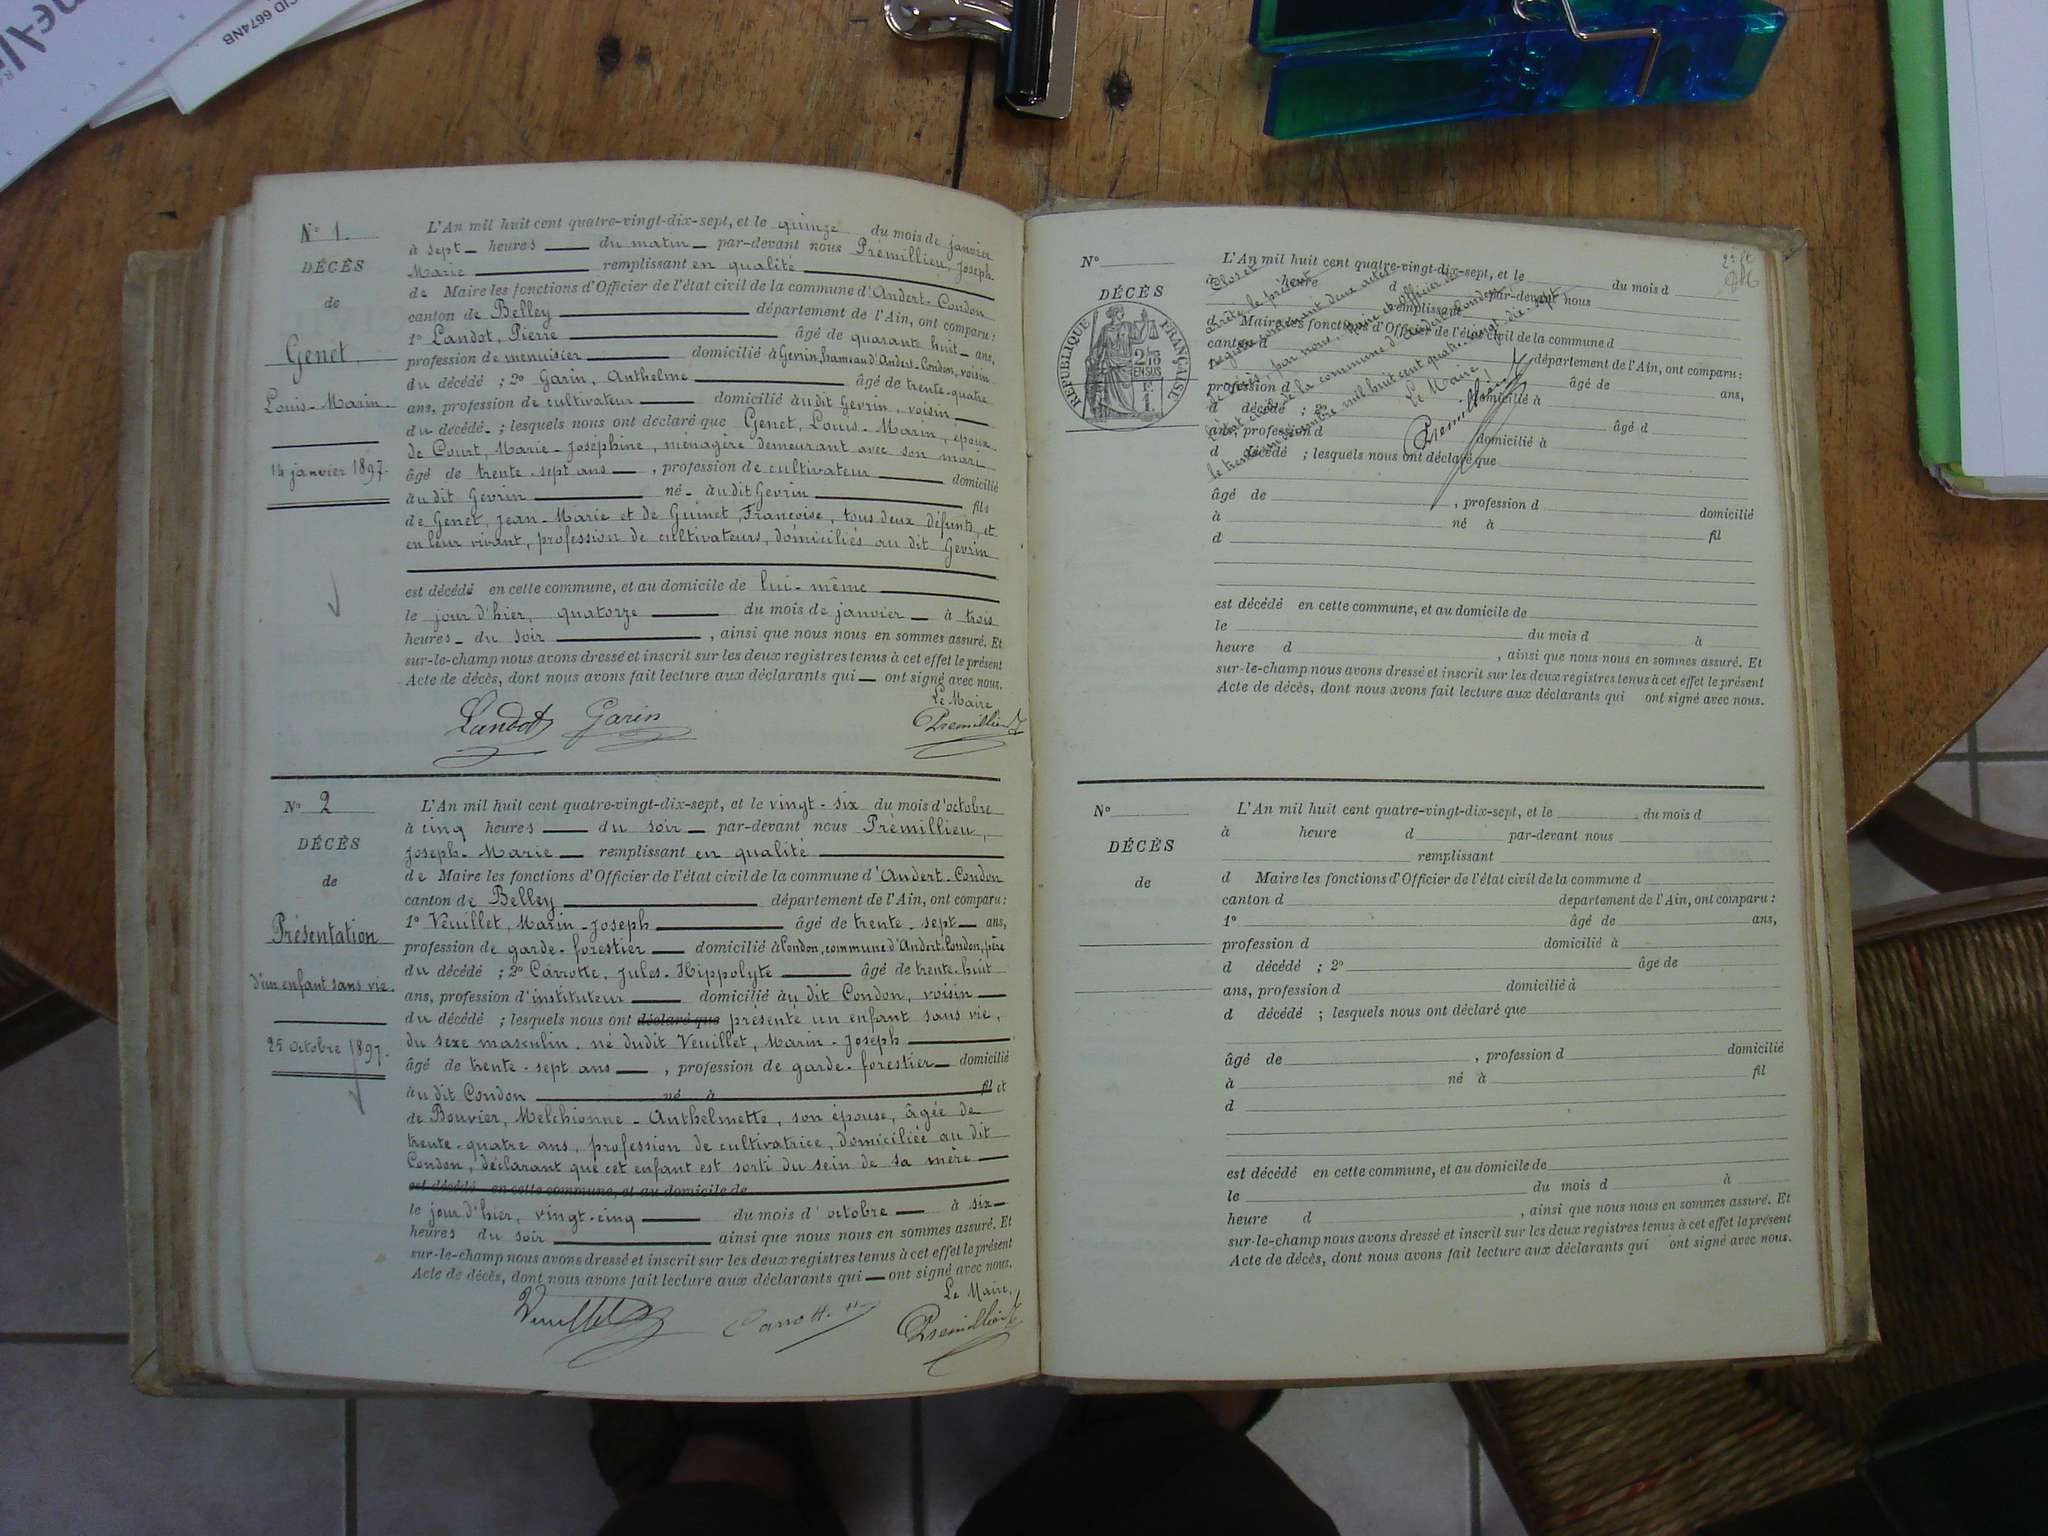 CID 6674NB
N° 1.
DÉCÈS
de
Genet,
Louis-Marin
14 janvier 1897.
L'An mil huit cent quatre-vingt-dix-sept, et le quinze du mois de janvier
à sept heures du matin par-devant nous Prémillieu, Joseph-
Marie remplissant en qualité
de Maire les fonctions d'Officier de l'état civil de la commune d'Andert-Condon
canton de Belley département de l'Ain, ont comparu :
1° Landot, Pierre âgé de quarante huit ans,
profession de menuisier domicilié à Gevrin, hameau d'Andert-Condon, voisin
du décédé ; 2° Garin, Anthelme âgé de trente-quatre
ans, profession de cultivateur domicilié au dit Gevrin, voisin
du décédé ; lesquels nous ont déclaré que Genet, Louis-Marin, époux
de Court, Marie-Joséphine, ménagère demeurant avec son mari
âgé de trente-sept ans, profession de cultivateur domicilié
au dit Gevrin né au dit Gevrin fils
de Genet, Jean-Marie et de Guinet, Françoise, tous deux défunts, et
en leur vivant, profession de cultivateurs, domiciliés au dit Gevrin
est décédé en cette commune, et au domicile de lui-même
le jour d'hier, quatorze du mois de janvier à trois
heures du soir, ainsi que nous nous en sommes assuré. Et
sur-le-champ nous avons dressé et inscrit sur les deux registres tenus à cet effet le présent
Acte de décès, dont nous avons fait lecture aux déclarants qui ont signé avec nous.
Le Maire
Landot Garin Premillieu J
N° 2
DÉCÈS
de
Présentation
d'un enfant sans vie.
25 octobre 1897.
L'An mil huit cent quatre-vingt-dix-sept, et le vingt-six du mois d'octobre
à cinq heures du soir par-devant nous Prémillieu,
Joseph-Marie remplissant en qualité
de Maire les fonctions d'Officier de l'état civil de la commune d'Andert-Condon
canton de Belley département de l'Ain, ont comparu :
1° Veuillet, Marin-Joseph âgé de trente-sept ans,
profession de garde-forestier domicilié à Condon, commune d'Andert-Condon, père
du décédé ; 2° Carrotte, Jules-Hippolyte âgé de trente-huit
ans, profession d'instituteur domicilié au dit Condon, voisin
du décédé ; lesquels nous ont déclaré que présenté un enfant sans vie,
du sexe masculin, né dudit Veuillet, Marin-Joseph
âgé de trente-sept ans, profession de garde-forestier domicilié
au dit Condon né à fil et
de Bouvier, Melchionne-Anthelmette, son épouse, âgée de
trente-quatre ans, profession de cultivatrice, domiciliée au dit
Condon, déclarant que cet enfant est sorti du sein de sa mère
est décédé en cette commune, et au domicile de
le jour d'hier, vingt-cinq du mois d'octobre à six
heures du soir ainsi que nous nous en sommes assuré. Et
sur-le-champ nous avons dressé et inscrit sur les deux registres tenus à cet effet le présent
Acte de décès, dont nous avons fait lecture aux déclarants qui ont signé avec nous.
Le Maire,
Veuillet Carrotte Premillieu J
N°
DÉCÈS
RÉPUBLIQUE FRANÇAISE
L'An mil huit cent quatre-vingt-dix-sept, et le du mois d
à heure d par-devant nous
remplissant
d Maire les fonctions d'Officier de l'état civil de la commune d
canton d département de l'Ain, ont comparu :
âgé de ans,
profession d domicilié à
d décédé ; 2° âgé d
ans, profession d domicilié à
d décédé ; lesquels nous ont déclaré que
Clos et
arrêté le présent
registre contenant deux actes
de décès, par nous, Maire et Officier de
l'état civil de la commune d'Andert-Condon,
le trente-un décembre mil huit cent quatre-vingt-dix-sept
Le Maire
Premillieu J
âgé de , profession d domicilié
à né à fil
d
est décédé en cette commune, et au domicile de
le du mois d à
heure d , ainsi que nous nous en sommes assuré. Et
sur-le-champ nous avons dressé et inscrit sur les deux registres tenus à cet effet le présent
Acte de décès, dont nous avons fait lecture aux déclarants qui ont signé avec nous.
N°
DÉCÈS
de
L'An mil huit cent quatre-vingt-dix-sept, et le du mois d
à heure d par-devant nous
remplissant
d Maire les fonctions d'Officier de l'état civil de la commune d
canton d département de l'Ain, ont comparu :
1° âgé de ans,
profession d domicilié à
d décédé ; 2° âgé de
ans, profession d domicilié à
d décédé ; lesquels nous ont déclaré que
âgé de , profession d domicilié
à né à fil
d
est décédé en cette commune, et au domicile de
le du mois d à
heure d , ainsi que nous nous en sommes assuré. Et
sur-le-champ nous avons dressé et inscrit sur les deux registres tenus à cet effet le présent
Acte de décès, dont nous avons fait lecture aux déclarants qui ont signé avec nous.